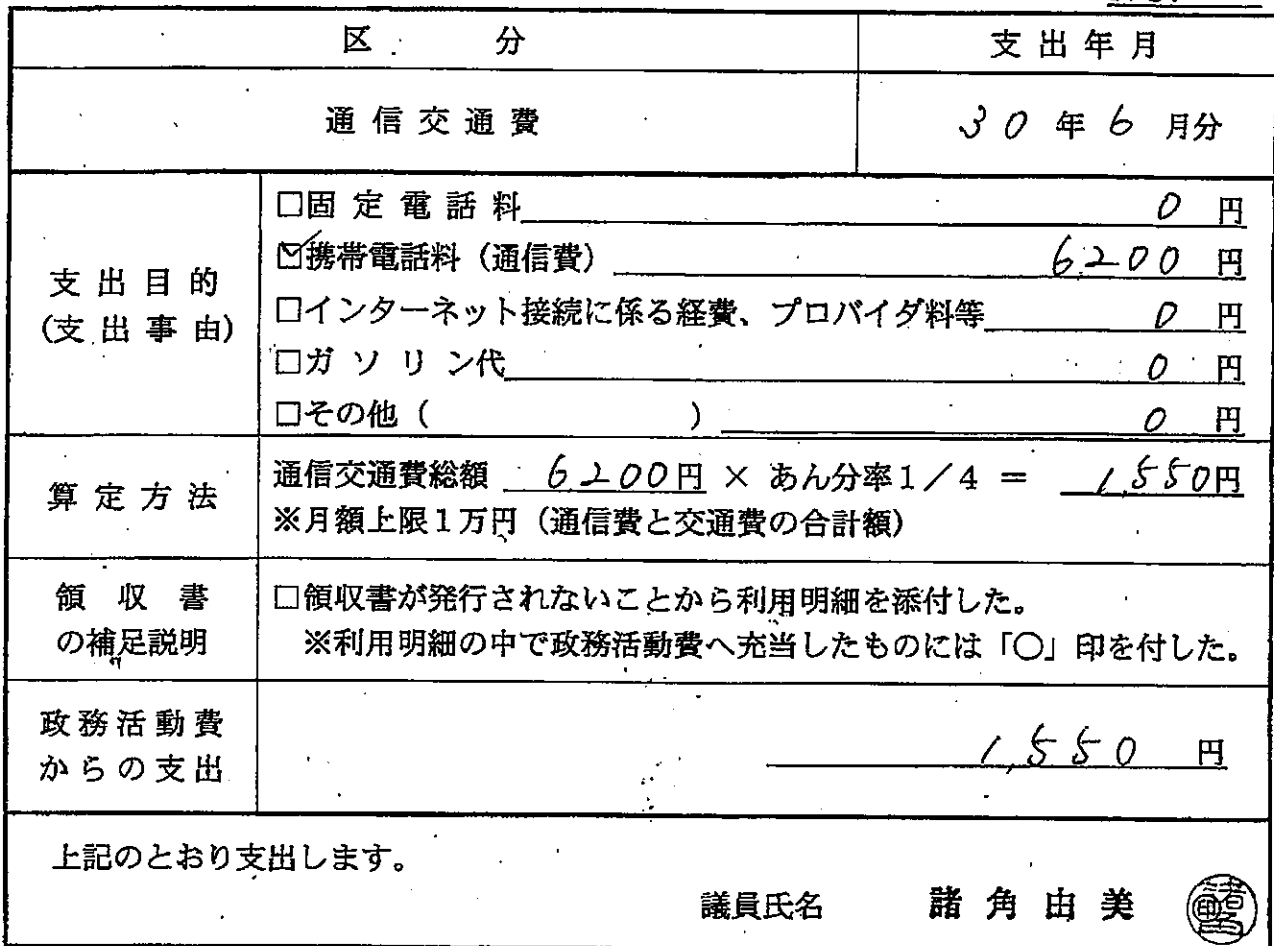 区 分 支出年月
通信交通費 30年6月分
支出目的
(支出事由)
□固定電話料 0 円
☑携帯電話料（通信費） 6,200 円
□インターネット接続に係る経費、プロバイダ料等 0 円
□ガソリン代 0 円
□その他（ ） 0 円
算定方法
通信交通費総額 6,200円 × あん分率1／4 ＝ 1,550円
※月額上限1万円（通信費と交通費の合計額）
領収書
の補足説明
□領収書が発行されないことから利用明細を添付した。
※利用明細の中で政務活動費へ充当したものには「○」印を付した。
政務活動費
からの支出
1,550 円
上記のとおり支出します。
議員氏名 諸角由美